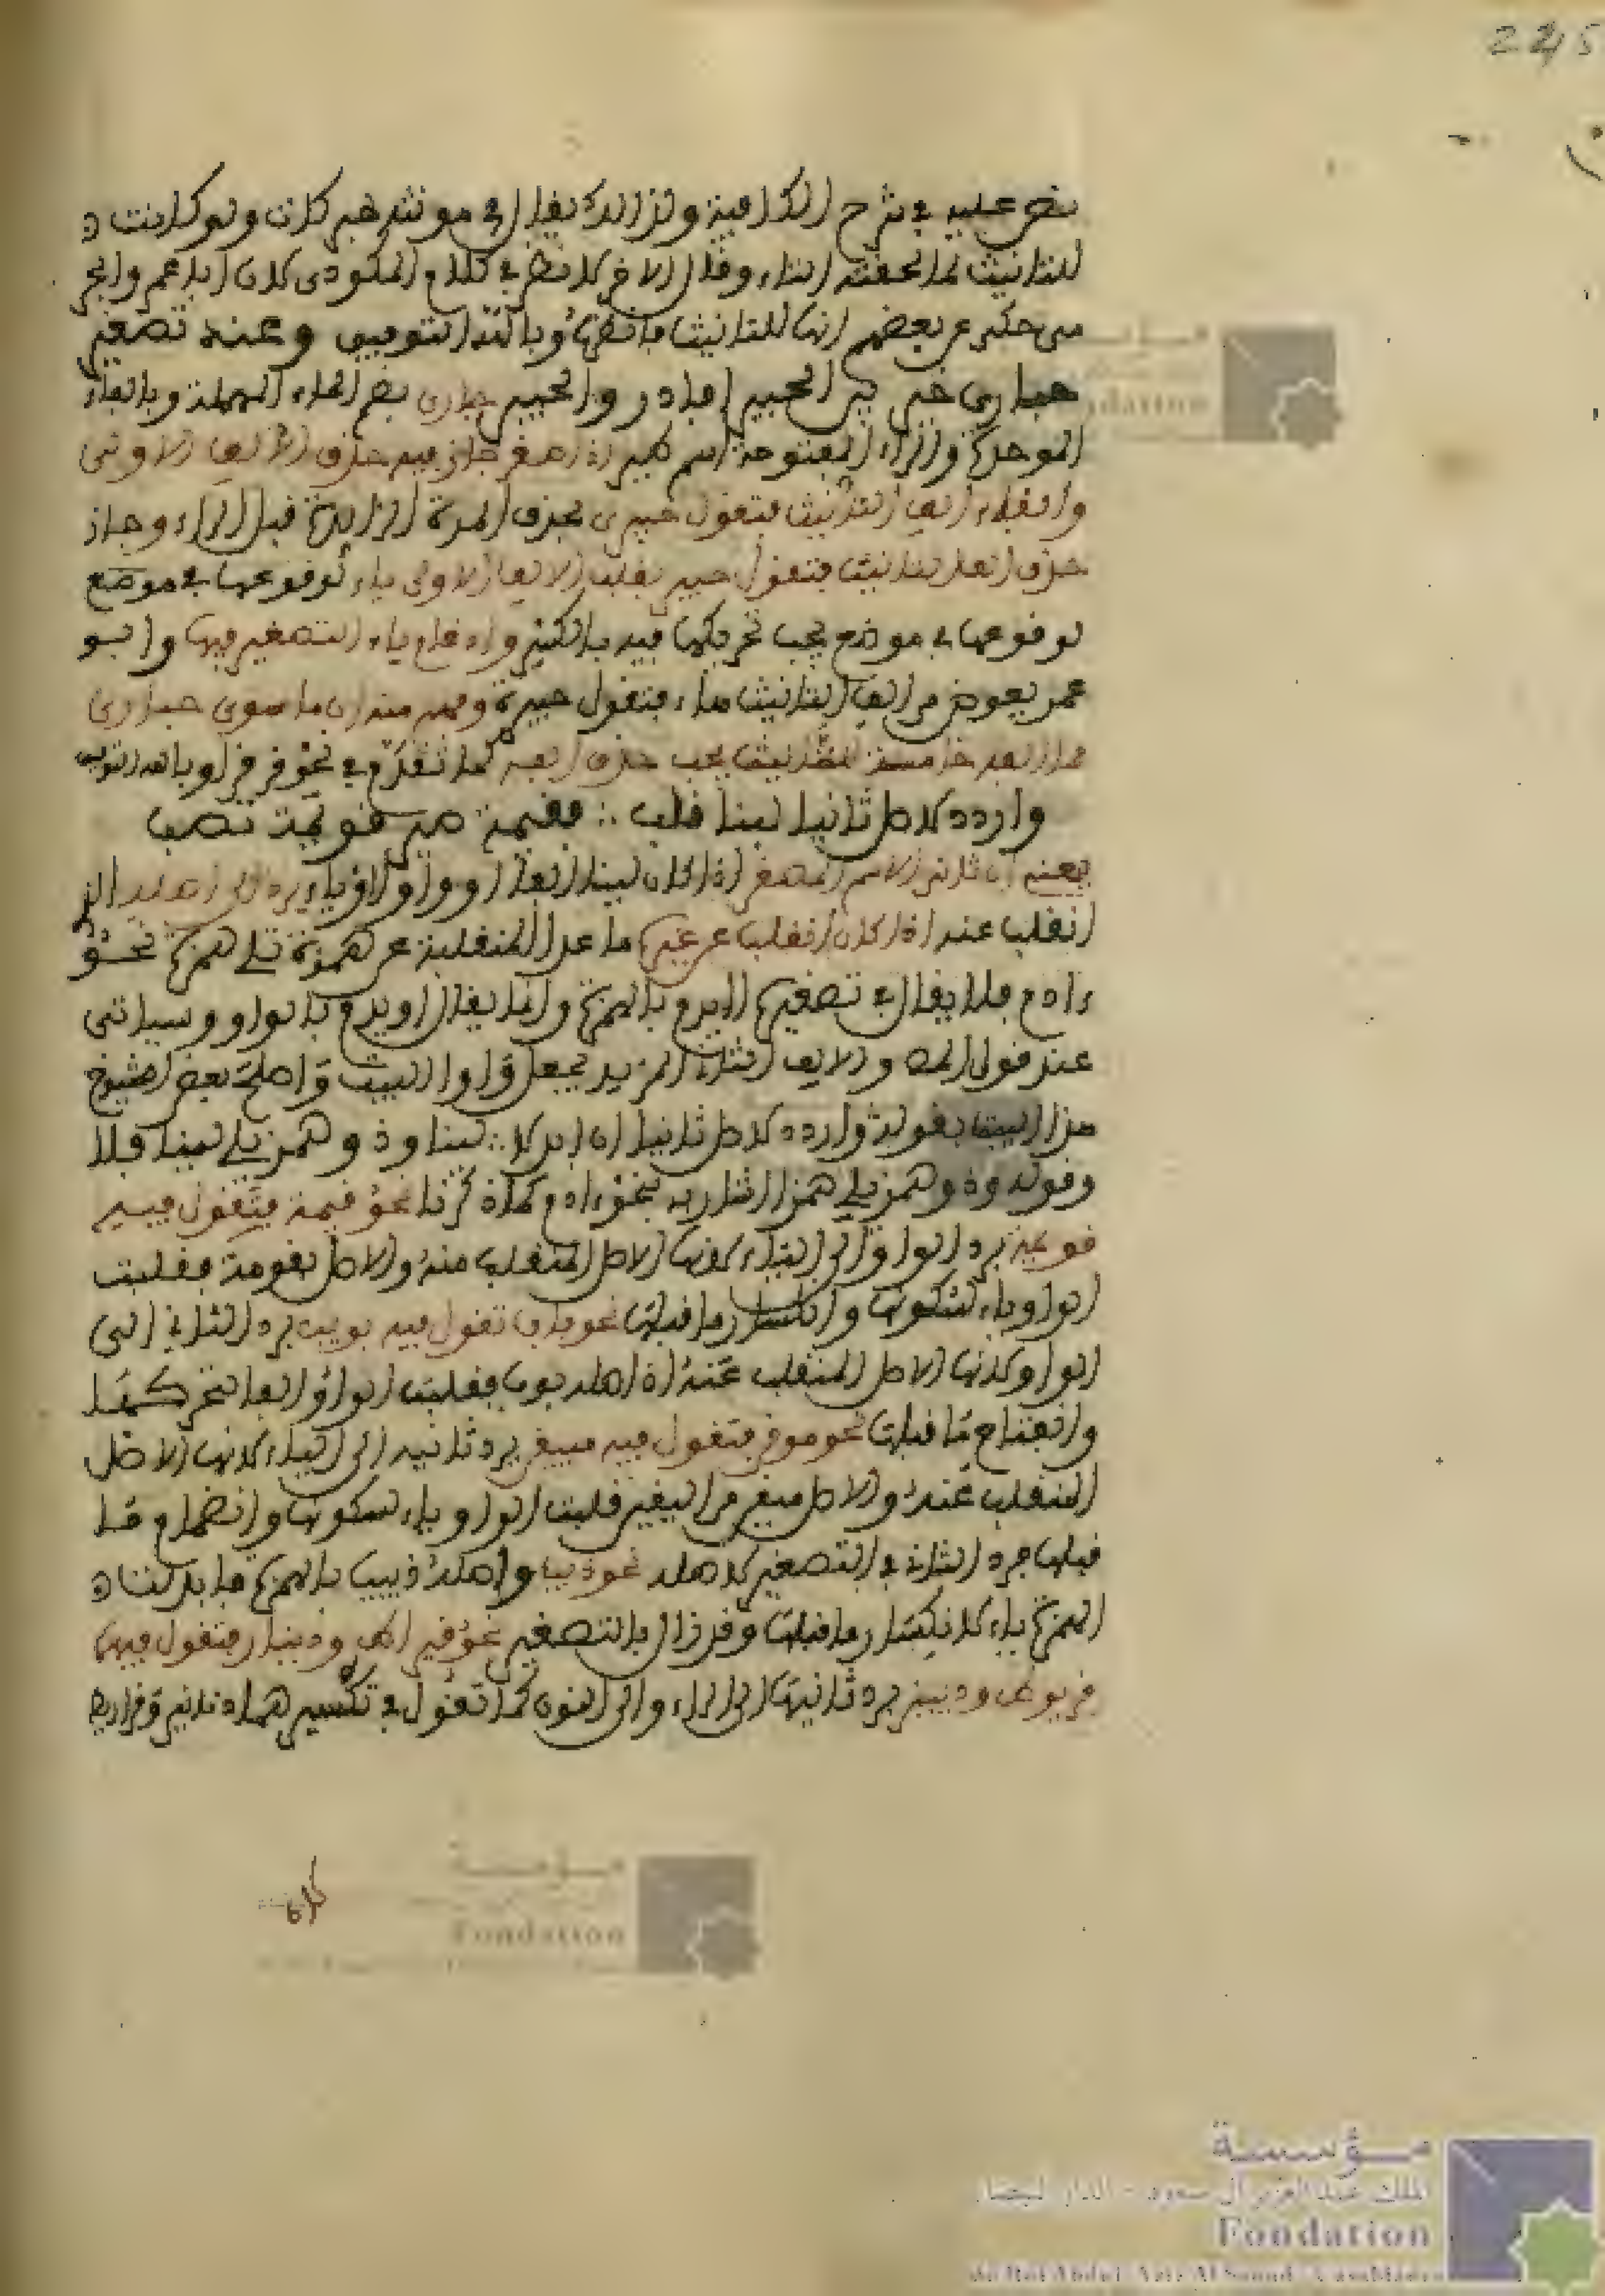 225
نص عليه في شرح الكافية ولذالك يقال في مونثه كان ولو كانت
للتانيث لما لحقته التاء وقال الاخر لا نظر في كلام المكودي لان ابا عمر والجر
مى حكى عن بعضهم انها للتانيث وبالله التوفيق وعند تصغير
حبارى خير بين الحبيرى فادر والحبير حبارى بضم الحاء المهملة وبالباء
الموحدة والراء المفتوحة اسم طير اذا صغر جاز فيه حذف الالف الاولى
وابقاء الف التانيث فتقول حبيرى بحذف المدة الزايدة قبل الراء وجاز
حذف الف التانيث فتقول حبير بقلب الالف الاولى ياء لوقوعها في موضع
لوقوعها في موضع يجب تحريكها فيه بالكسر وادغام ياء التصغير فيها وابو
عمر يعوض من الف التانيث هاء فتقول حبيرة وفهم منه ان ما سوى حبارى
مما الفه خامسة للتانيث يجب حذف الفه كما تقدم في نحو قرقرا وبالله التوفيق
واردد لاصل ثانيا لينا قلب ∴ فقيمة صير قويمة تصب
يعني ان ثاني الاسم المصغر اذا كان لينا الفا او واوا او ياء يرد الى اصله الذ
انقلب عنه اذا كان انقلب عن غيره ما عدا المنقلبة عن همزة تلي همزة نحو
ءادم فلا يقال في تصغيره اايدم بالهمزة وانما يقال اويدم بالواو وسياتي
عند قول المص والالف الثان المزيد يجعل واوا البيت واصلح بعض الشيوخ
هذا البيت بقوله واردد لاصل ثانيا ان ابدلا ∴ لينا وذو همز يلي لينا فلا
وقوله وذو همز يلي همزا اشار به لنحو ءادم كما ذكرنا نحو قيمة فتقول فيه
قويمة برد الواو الى الياء لانها الاصل المنقلب منه والاصل بقومة فقلبت
الواو ياء لسكونها وانكسار ما قبلها نحو باب تقول فيه بويب برد الثاني الى
الواو لانها الاصل المنقلب عنه اذ اصله بوب فقلبت الواو الفا لتحركها
وانفتاح ما قبلها نحو موقن فتقول فيه مييقن برد ثانيه الى الياء لانها الاصل
المنقلب عنه والاصل ميقن من اليقين قلبت الواو ياء لسكونها وانضمام ما
قبلها فرد الثاني في التصغير لاصله نحو ذيب واصله ذييب بالهمزة فابدلت
الهمزة ياء لانكسار ما قبلها وقد زال بالتصغير نحو قيراط ودينار فتقول فيهما
قريريط ودنينير برد ثانيهما الى الراء والى النون كما تقول في تكسيرهما دنانير وقراريط
كان
مؤسسة
الملك عبد العزيز آل سعود - الدار البيضاء
Fondation
du Roi Abdul-Aziz Al Saoud - Casablanca